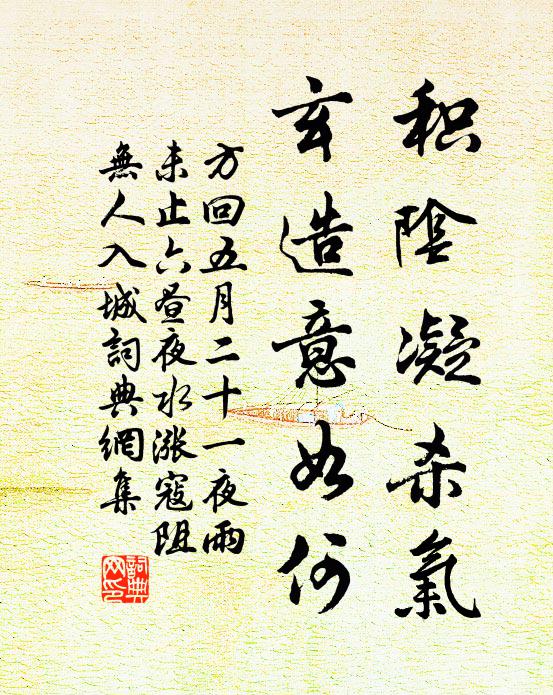 积陰凝杀氣
玄造意如何
方回五月二十一夜雨
未止六昼夜水漲寇阻
無人入城詞典網集
詞典
网印